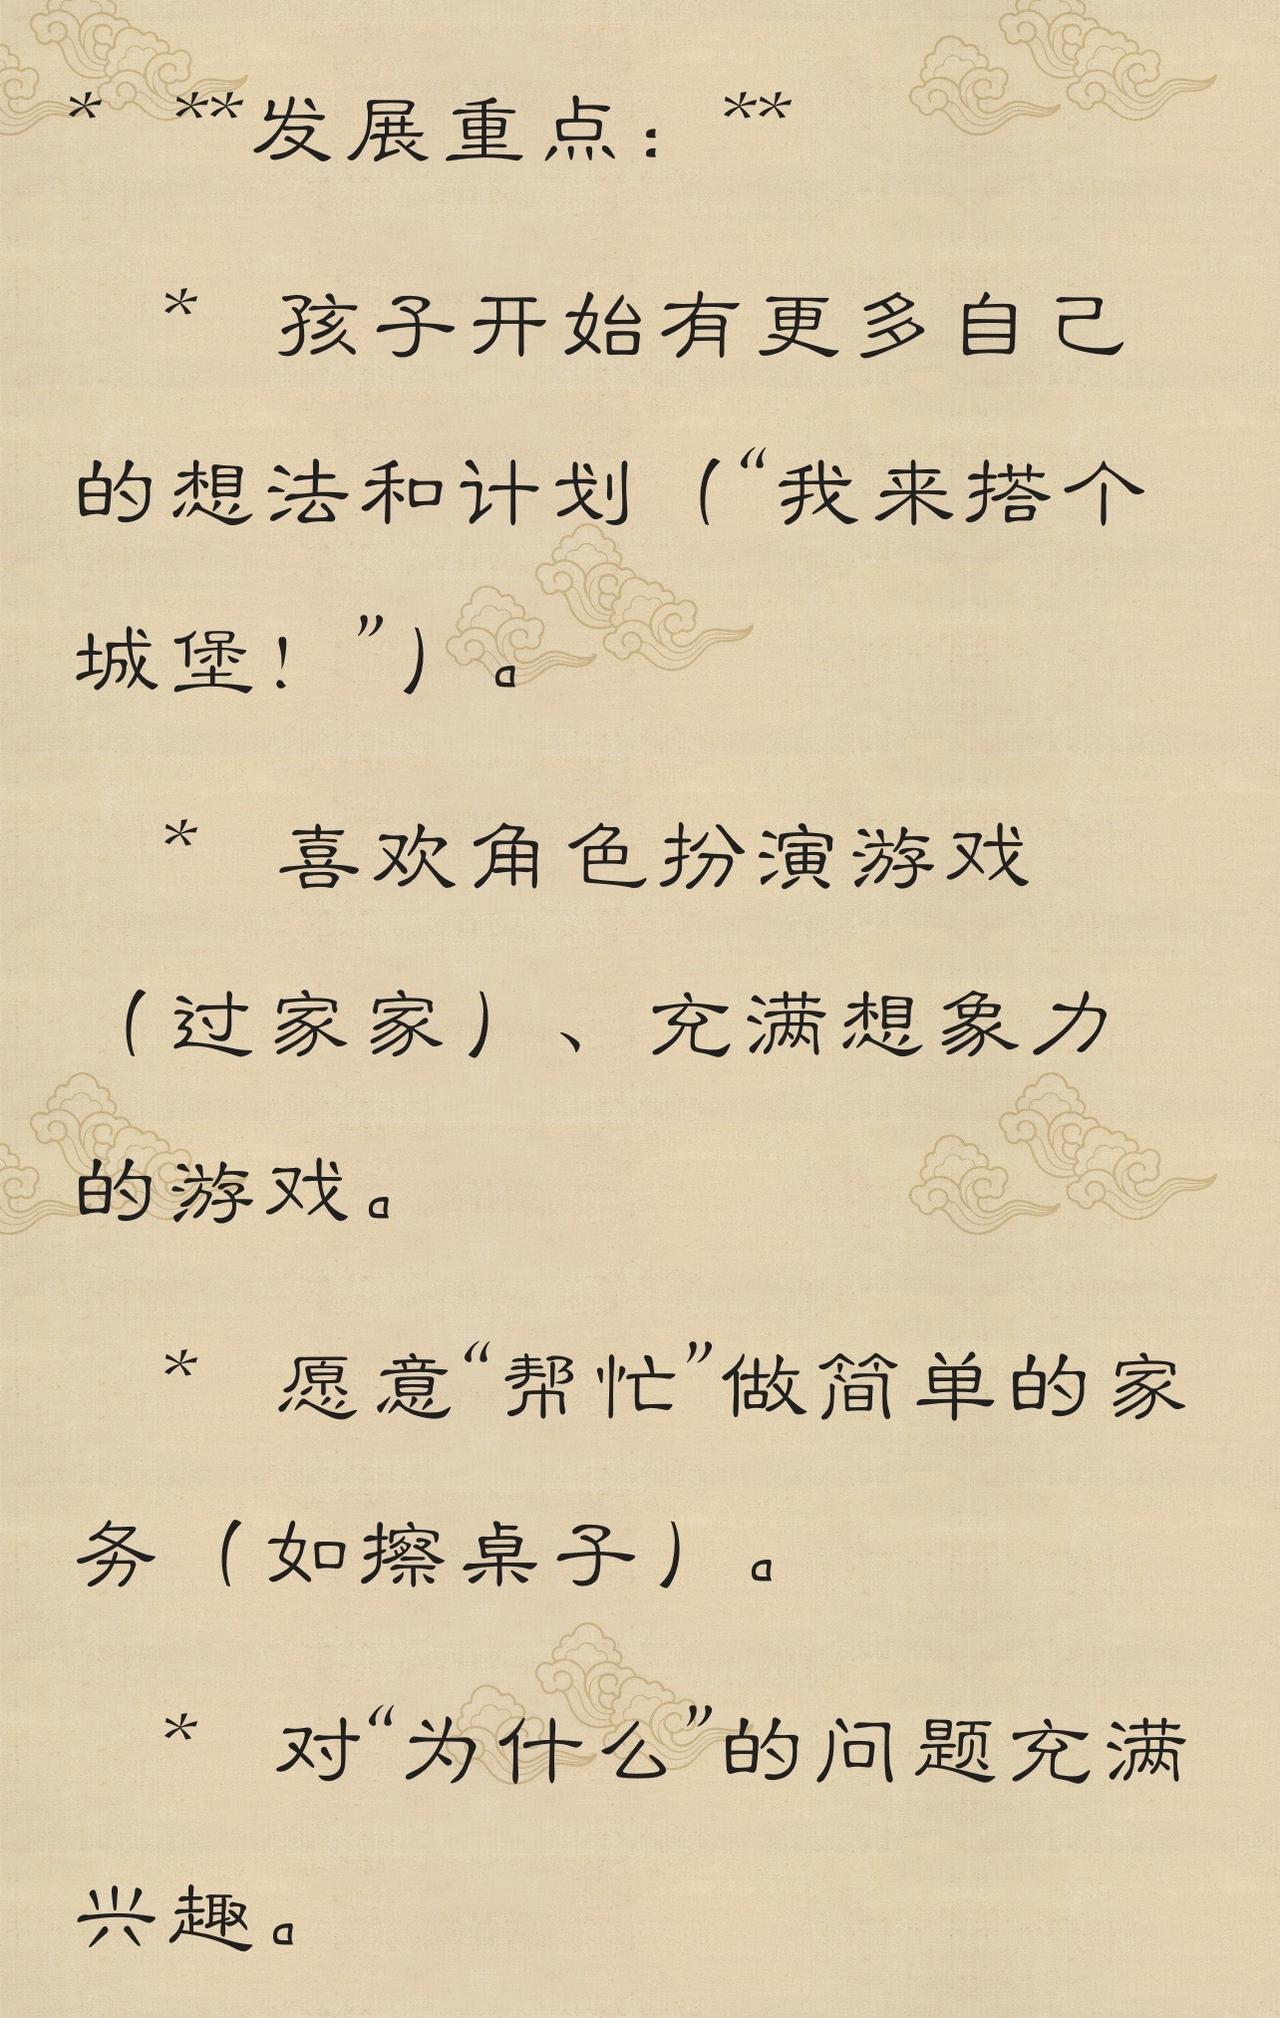 * **发展重点：**
* 孩子开始有更多自己
的想法和计划（“我来搭个
城堡！”）。
* 喜欢角色扮演游戏
（过家家）、充满想象力
的游戏。
* 愿意“帮忙”做简单的家
务（如擦桌子）。
* 对“为什么”的问题充满
兴趣。